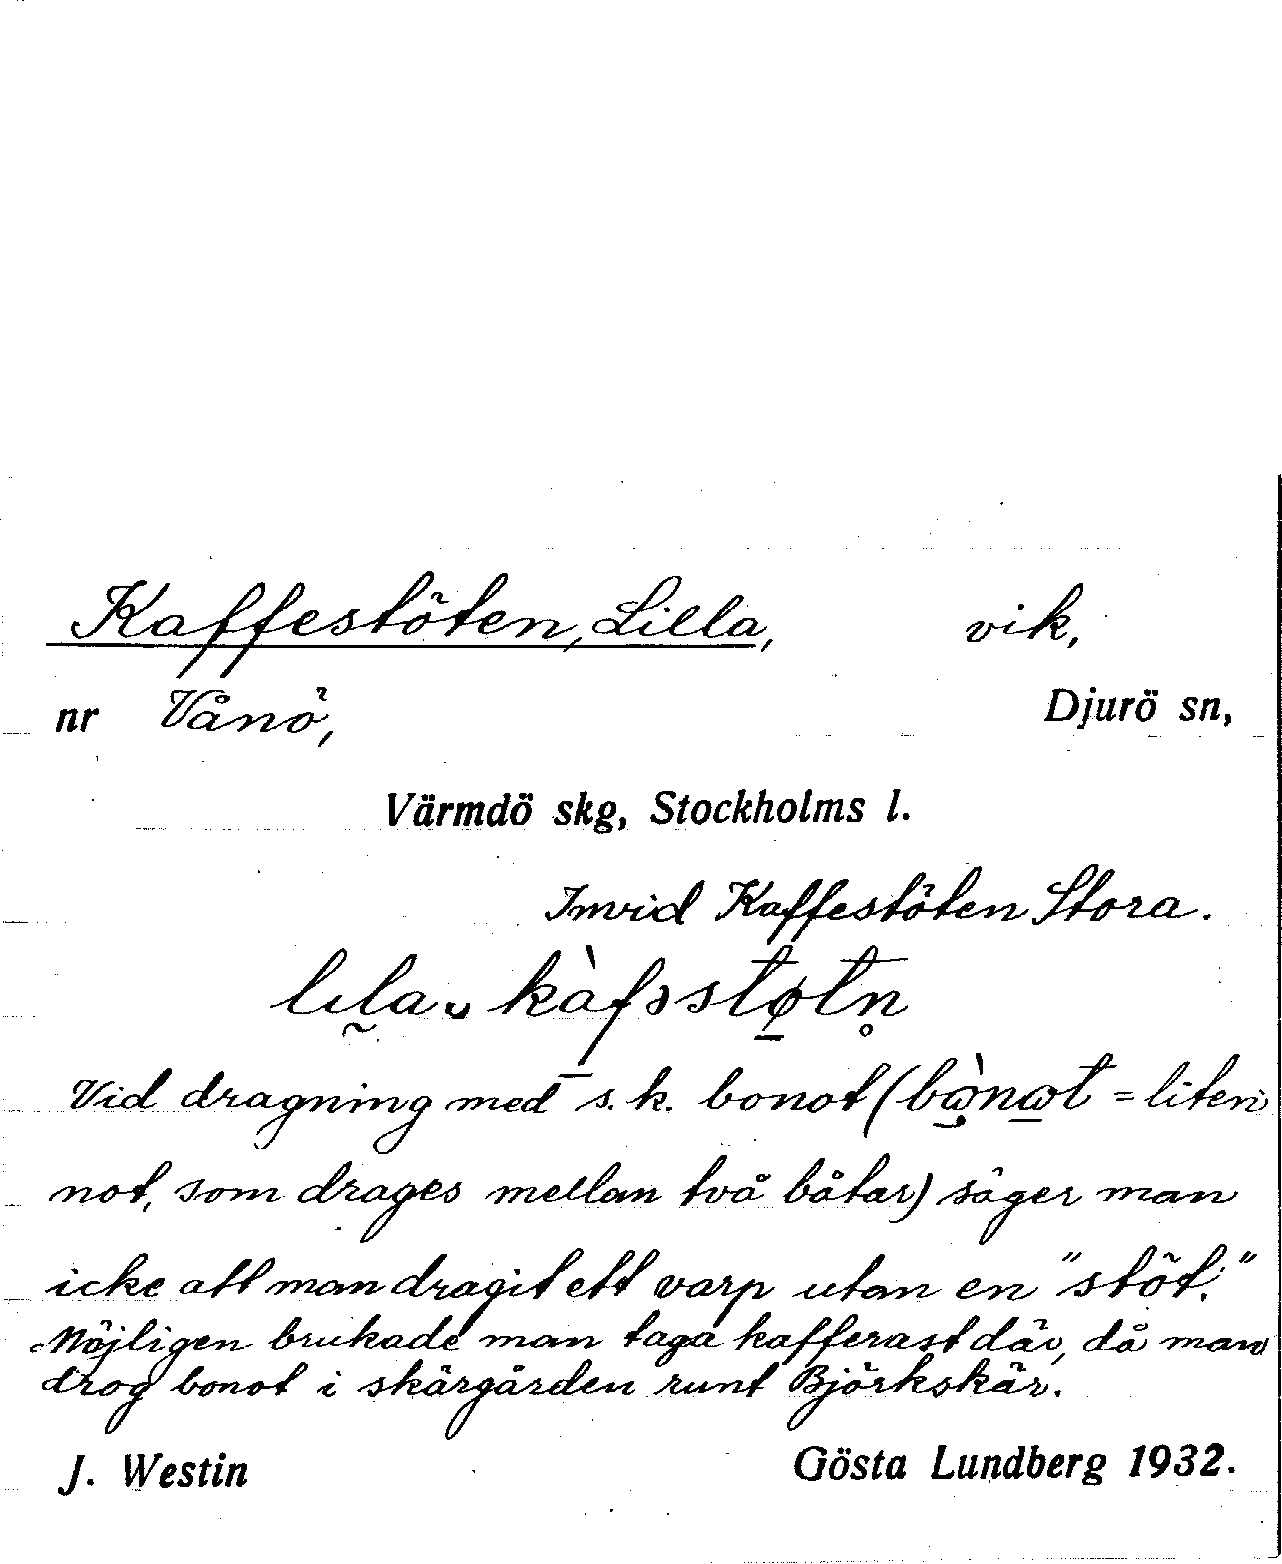 Kaffestöten, Lilla, vik,
nr Vånö, Djurö sn,
Värmdö skg, Stockholms l.
Invid Kaffestöten Stora.
Vid dragning med s.k. bonot ( = liten
not, som drages mellan två båtar) säger man
icke att man dragit ett varp utan en "stöt."
Möjligen brukade man taga kafferast där, då man
drog bonot i skärgården runt Björkskär.
J. Westin Gösta Lundberg 1932.